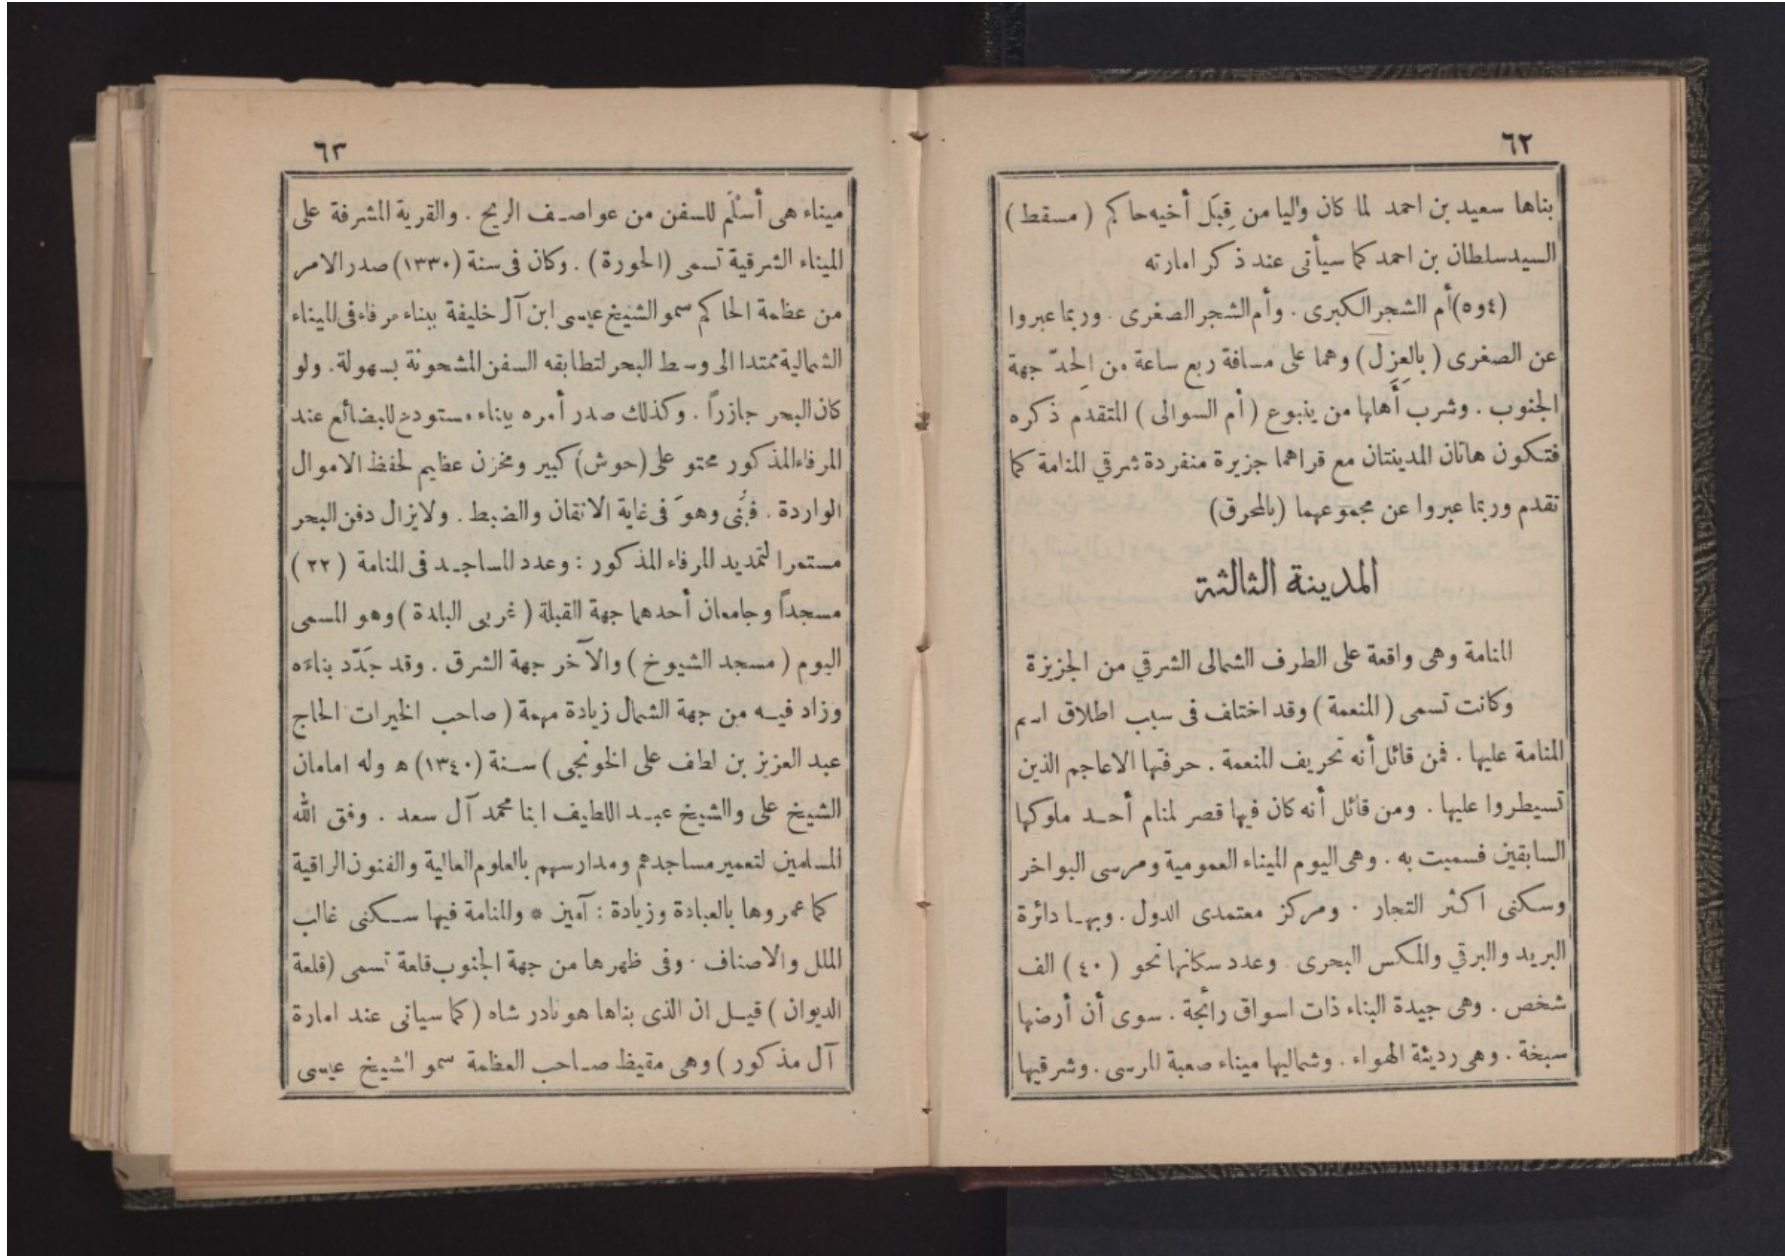 ٦٢
بناها سعيد بن احمد لما كان واليا من قِبَل أخيه حاكم (مسقط)
السيد سلطان بن احمد كما سيأتى عند ذكر امارته
(٤و٥) أم الشجر الكبرى . وأم الشجر الصغرى . وربما عبروا
عن الصغرى (بالعزل) وهما على مسافة ربع ساعة من الحدّ جهة
الجنوب . وشرب أهلها من ينبوع (أم السوالى) المتقدم ذكره
فتكون هاتان المدينتان مع قراهما جزيرة منفردة شرقي المنامة كما
تقدم وربما عبروا عن مجموعهما (بالمحرق)
المدينة الثالثة
المنامة وهى واقعة على الطرف الشمالى الشرقي من الجزيزة
وكانت تسمى (المنعمة) وقد اختلف فى سبب اطلاق اسم
المنامة عليها . فمن قائل أنه تحريف المنعمة . حرفتها الاعاجم الذين
تسيطروا عليها . ومن قائل أنه كان فيها قصر لمنام أحد ملوكها
السابقين فسميت به . وهى اليوم الميناء العمومية ومرسى البواخر
وسكنى اكثر التجار . ومركز معتمدى الدول . وبها دائرة
البريد والبرقي والمكس البحرى . وعدد سكانها نحو (٤٠) الف
شخص . وهى جيدة البناء ذات اسواق رائجة . سوى أن أرضها
سبخة . وهى رديئة الهواء . وشماليها ميناء صعبة المرسى . وشرقيها
٦٣
ميناء هى أسْلَم للسفن من عواصف الريح . والقرية المشرفة على
الميناء الشرقية تسمى (الحورة) . وكان فى سنة (١٣٣٠) صدر الامر
من عظمة الحاكم سمو الشيخ عيسى ابن آل خليفة ببناء مرفاء فى الميناء
الشمالية ممتدا الى وسط البحر لتطابقه السفن المشحونة بسهولة . ولو
كان البحر جازراً . وكذلك صدر أمره ببناء مستودع للبضائع عند
المرفاء المذكور محتو على (حوش) كبير ومخزن عظيم لحفظ الاموال
الواردة . فبُنى وهوَ فى غاية الاتقان والضبط . ولا يزال دفن البحر
مستمرا لتمديد المرفاء المذكور : وعدد المساجد فى المنامة (٢٢)
مسجداً وجامعان أحدهما جهة القبلة (غربى البلدة) وهو المسمى
اليوم (مسجد الشيوخ) والآخر جهة الشرق . وقد جَدّد بناءَه
وزاد فيه من جهة الشمال زيادة مهمة (صاحب الخيرات الحاج
عبد العزيز بن لطف على الخونجى) سنة (١٣٤٠) ه وله امامان
الشيخ على والشيخ عبد اللطيف ابنا محمد آل سعد . وفق الله
المسلمين لتعمير مساجدهم ومدارسهم بالعلوم العالية والفنون الراقية
كما عمروها بالعبادة وزيادة : آمين * والمنامة فيها سكنى غالب
الملل والاصناف . وفى ظهرها من جهة الجنوب قلعة تسمى (قلعة
الديوان) قيل ان الذى بناها هو نادر شاه (كما سيانى عند امارة
آل مذكور) وهى مقيظ صاحب العظمة سمو الشيخ عيسى